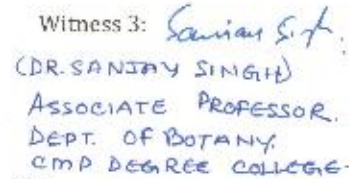 Witness 3: Sanjay Singh.
(DR. SANJAY SINGH)
ASSOCIATE PROFESSOR.
DEPT. OF BOTANY.
CMP DEGREE COLLEGE-